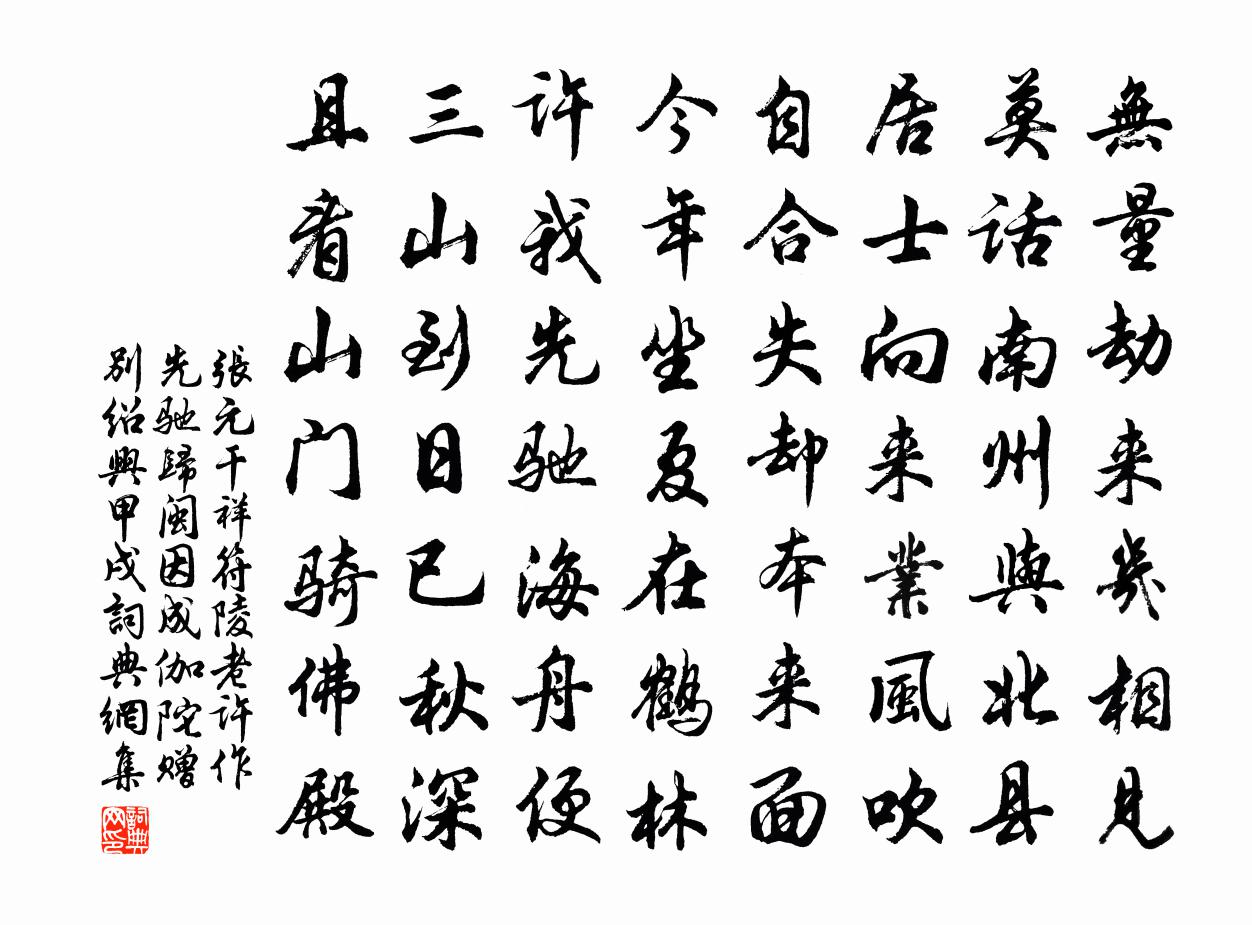 無量劫来幾相見
莫話南州與北县
居士向来業風吹
自合失却本来面
今年坐夏在鶴林
許我先驰海舟便
三山到日已秋深
且看山门骑佛殿
張元干祥符陵老許作
先驰歸闽因成伽陀赠
别紹興甲戌詞典網集
詞典网印